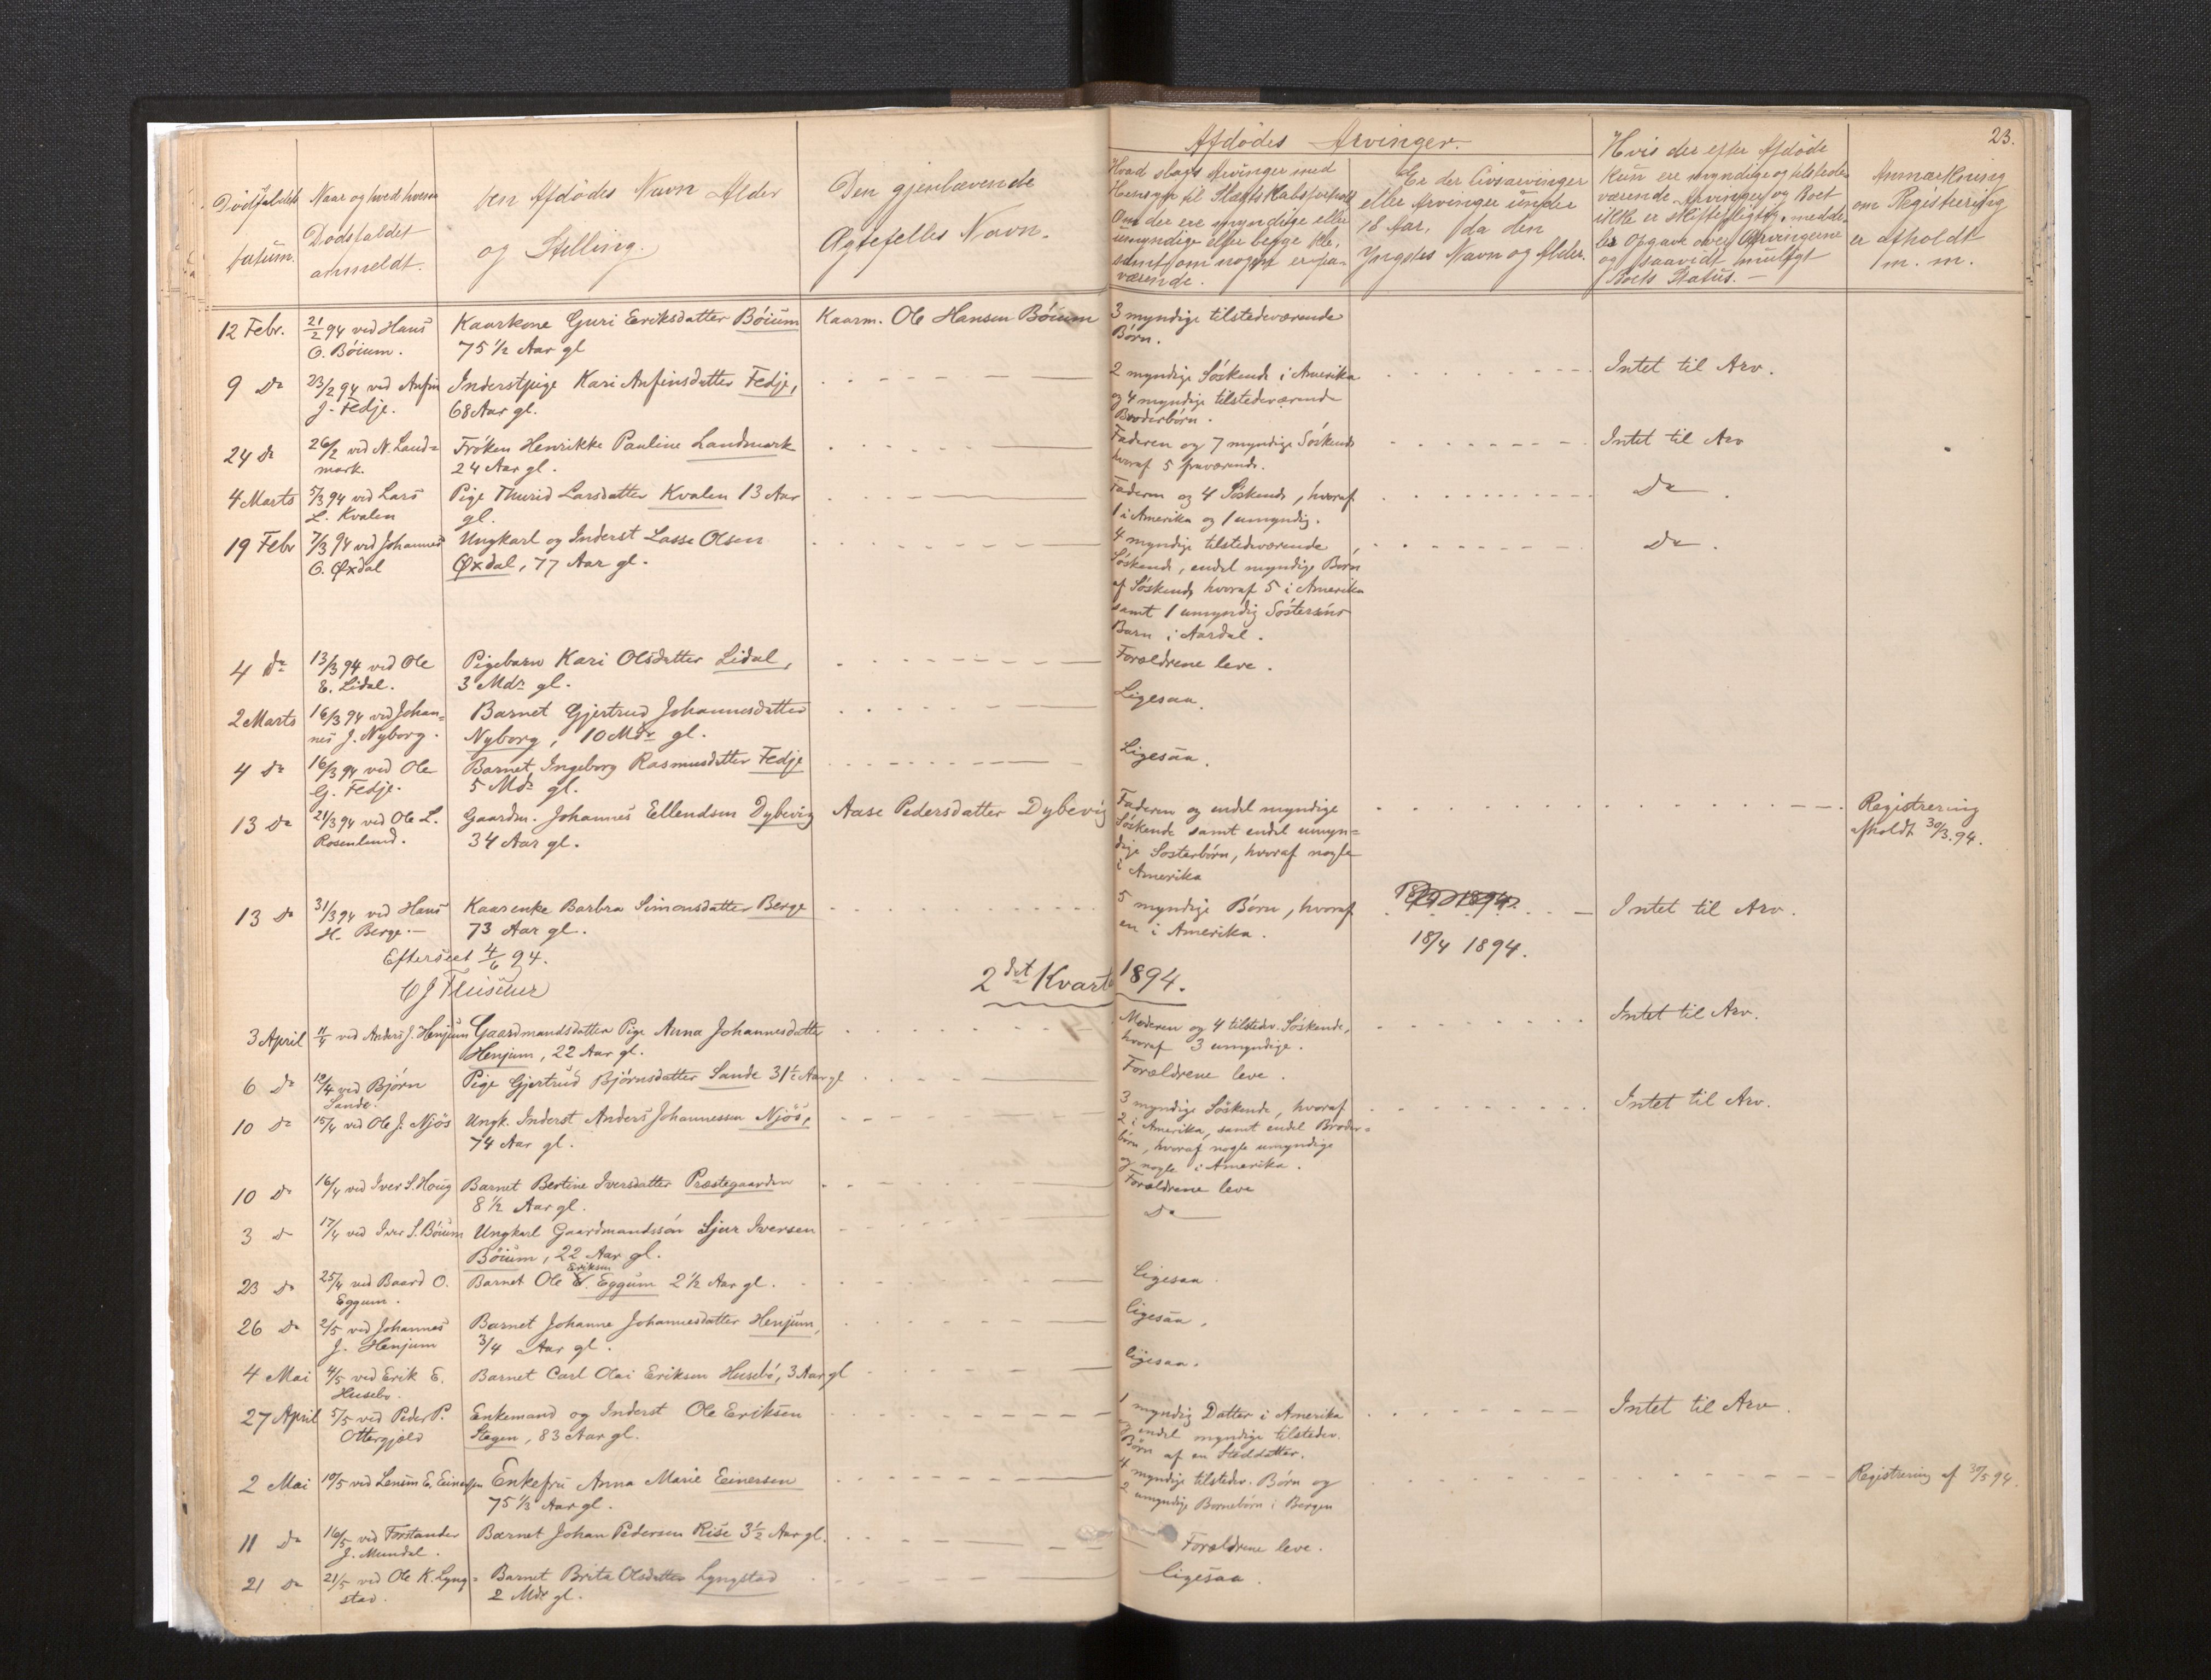 23.
Dödsfaldets
Datum.
Naar og hved hvem
Dødsfaldet
anmeldt.
Den Afdödes Navn Alder
og Stilling.
Den gjenlevende
Ægtefelles Navn.
Afdödes Arvinger.
Hvad slags Arvinger med
Hensyn til Slægtskabsforhold
Om der ere myndige eller
umyndige eller begge Dele,
samt om nogen er fra=
værende.
Er der Livsarvinger
eller Arvinger under
18 Aar, da den
Yngstes Navn og Alder.
Hvis der efter Afdöde
kun ere myndige og tilstede
værende Arvinger og Boet
ikke er skiftepligtig, medde
les Opgave over Arvingerne
og saavidt muligt
Boets Status. —
Anmærkning
om Registrering
er afholdt
m. m.
12 Febr.
21/2 94 ved Hans
O. Böium.
Kaarkone Guri Eriksdatter Böium
75 1/2 Aar gl
Kaarm. Ole Hansen Böium
3 myndige tilstedeværende
Börn.
9 Do
23/2 94 ved Anfin
J. Fedje.
Inderstpige Kari Anfinsdatter Fedje,
68 Aar gl.
2 myndige Söskende i Amerika
og 4 myndige tilstedeværende
Broderbörn.
Intet til Arv.
24 Do
26/2 ved N. Land=
mark.
Fröken Henrikke Pauline Landmark
24 Aar gl.
Faderen og 7 myndige Söskende
hvoraf 5 fraværende.
Intet til Arv
4 Marts
5/3 94 ved Lars
L. Kvalen
Pige Thurid Larsdatter Kvalen 13 Aar
gl.
Faderen og 4 Söskende, hvoraf
1 i Amerika og 1 umyndig.
Do.
19 Febr
7/3 94 ved Johannes
O. Øxdal
Ungkarl og Inderst Lasse Olsen
Øxdal, 77 Aar gl.
4 myndige tilstedeværende
Söskende, endel myndige Börn
af Söskende hvoraf 5 i Amerika
samt 1 umyndig Söstersöns
Barn i Aardal.
Do.
4 Do
13/3 94 ved Ole
E. Lidal.
Pigebarn Kari Olsdatter Lidal,
3 Mdr gl.
Forældrene leve.
2 Marts
16/3 94 ved Johan=
nes J. Nyborg.
Barnet Gjertrud Johannesdatter
Nyborg, 10 Mdr gl.
Ligesaa.
4 Do
16/3 94 ved Ole
G. Fedje.
Barnet Ingeborg Rasmusdatter Fedje
5 Mdr gl.
Ligesaa.
13 Do
21/3 94 ved Ole L.
Rosenlund.
Gaardm. Johannes Ellendsen Dybevig
34 Aar gl.
Aase Pedersdatter Dybevig
Faderen og endel myndige
Söskende samt endel umyn=
dige Sosterbörn, hvoraf nogle
i Amerika
Registrering
afholdt 30/3. 94.
13 Do
31/3 94 ved Hans
H. Berge. —
Kaarenke Barbra Simonsdatter Berge
73 Aar gl.
5 myndige Börn, hvoraf
en i Amerika.
18/4 1894.
Intet til Arv.
Efterseet 4/6 94.
2det Kvart 1894.
3 April
11/4 ved Anders J. Henjum
Gaardmandsdatter Pige Anna Johannesdatter
Henjum, 22 Aar gl.
Moderen og 4 tilstedev. Söskende,
hvoraf 3 umyndige.
Intet til Arv.
6 Do
12/4 ved Björn
Sande.
Pige Gjertrud Björnsdatter Sande 31 1/2 Aar gl
Forældrene leve.
10 Do
15/4 ved Ole J. Njös
Ungk. Inderst Anders Johannessen Njös,
74 Aar gl.
3 myndige Söskende, hvoraf
2 i Amerika, samt endel Broder=
börn, hvoraf nogle umyndige
og nogle i Amerika.
Intet til Arv.
10 Do
16/4 ved Iver S. Houg
Barnet Bertine Iversdatter Præstegaarden
8 1/2 Aar gl.
Forældrene leve
3 Do
17/4 ved Iver S. Böium
Ungkarl Gaardmandssön Sjur Iversen
Böium, 22 Aar gl.
Do
23 Do
25/4 ved Baard O.
Eggum.
Eriksen
Barnet Ole E. Eggum 2 1/2 Aar gl.
Ligesaa.
26 Do
2/5 ved Johannes
J. Henjum
Barnet Johanne Johannesdatter Henjum,
3/4 Aar gl.
Ligesaa.
4 Mai
4/5 ved Erik E.
Husebo.
Barnet Carl Olai Eriksen Husebö, 3 Aar gl
ligesaa.
27 April
5/5 ved Peder P.
Ottergjeld
Enkemand og Inderst Ole Eriksen
Stegen, 83 Aar gl.
1 myndig Datter i Amerika
og endel myndige tilstedev.
Börn af en Steddatter.
Intet til Arv.
2 Mai
10/5 ved Lensm E. Einersen
Enkefru Anna Marie Einersen
75 1/3 Aar gl.
4 myndige tilstedev. Börn og
2 umyndige Bornebörn i Bergen
Registrering af 30/5 94.
11 Do
16/5 ved Forstander
J. Mundal.
Barnet Johan Pedersen Rise 3 1/2 Aar gl.
Forældrene leve.
21 Do
21/5 ved Ole K. Lyng=
stad.
Barnet Brita Olsdatter Lyngstad
2 Mdr gl.
ligesaa.